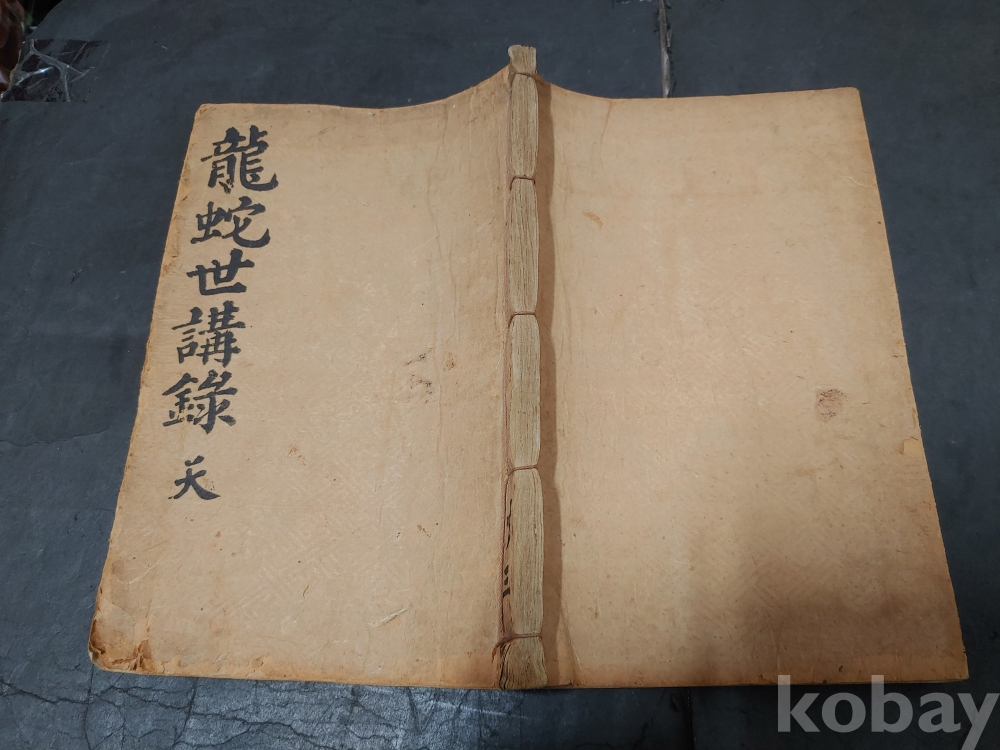 龍蛇世講錄 天
kobay